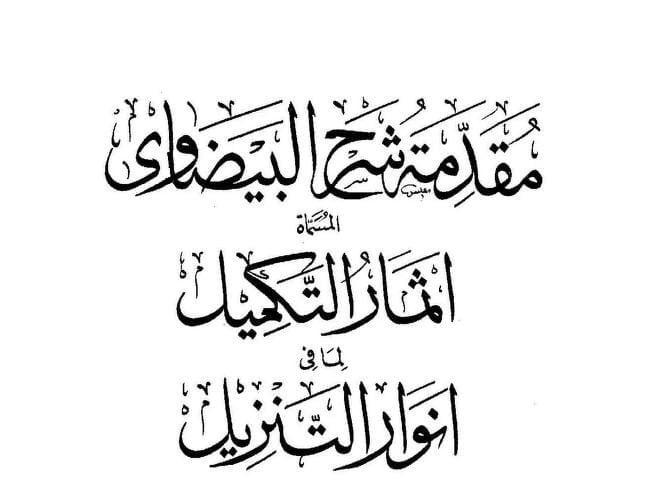 مُقَدِّمَة شَرح البَيضَاوی
المُسَمَّاة
اثمَارُ التَّكمِيل
لِمَا فِی
انوَار التَّنزِيل